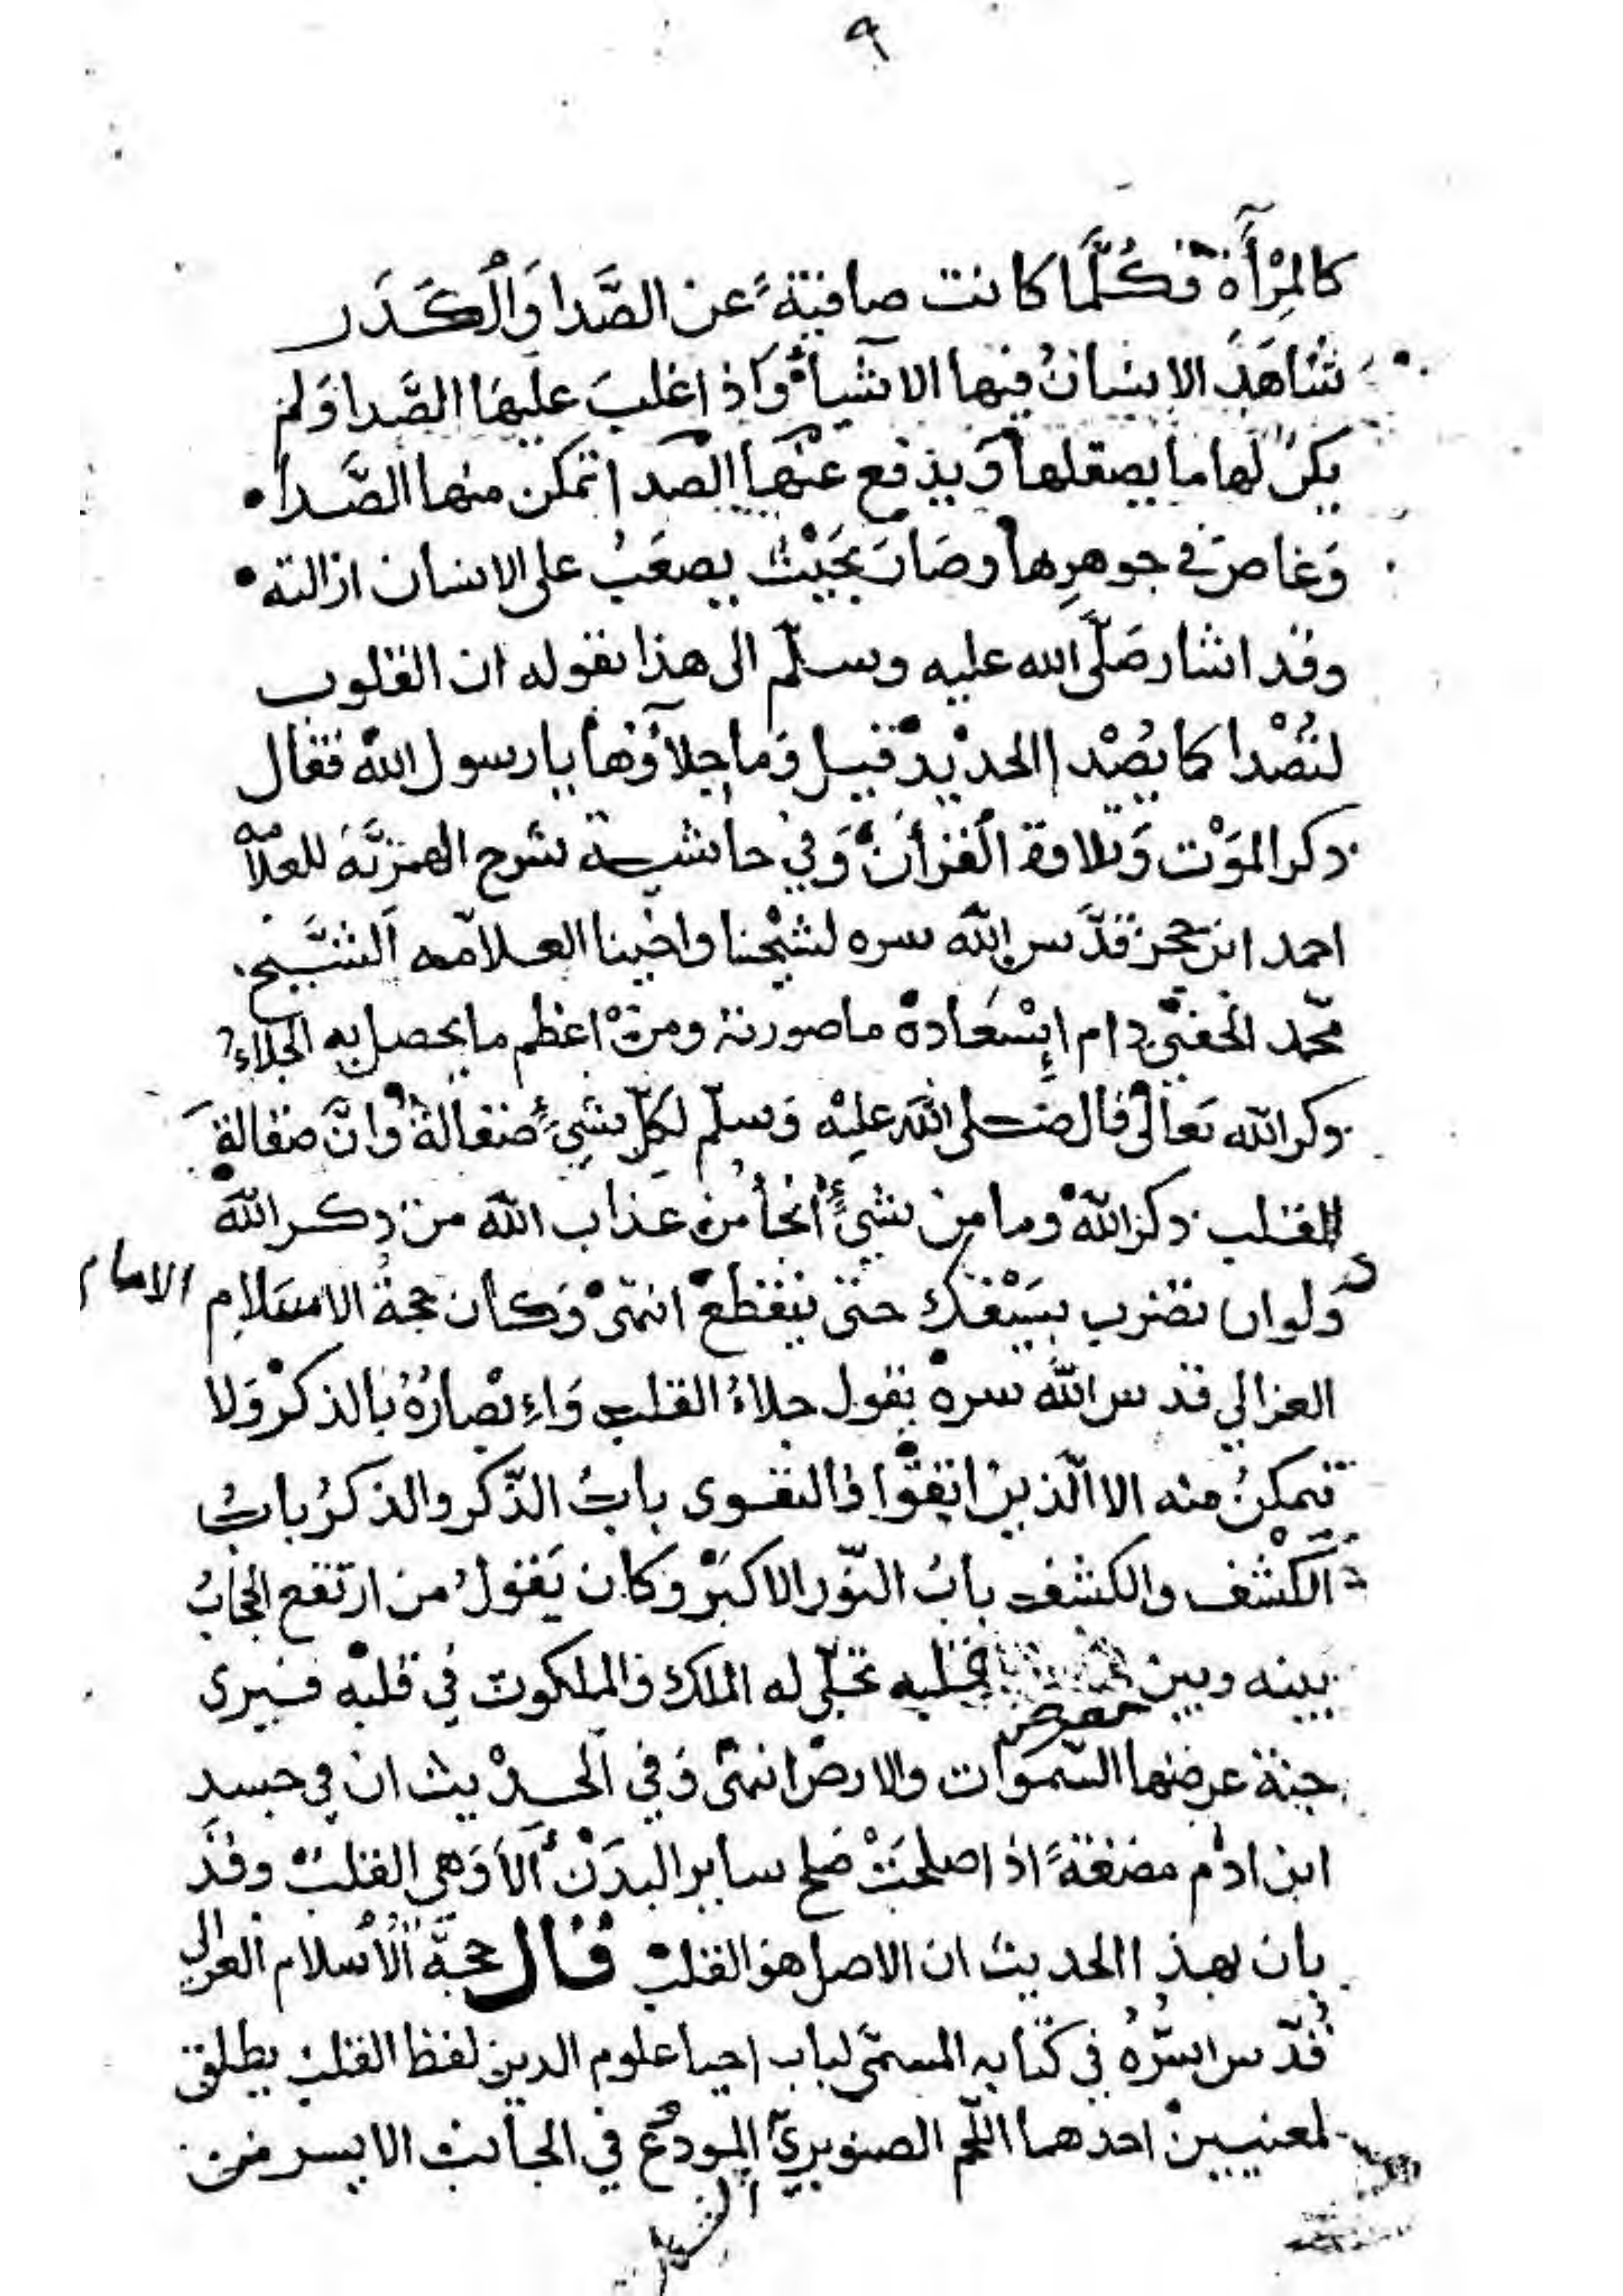 ٩
كالمِرْأَة فكُلَّما كانت صافيةً عن الصَّدا وَالْكَدَر
شَاهَدَ الانسانُ فيها الاشيآءَ وَاذا غلبَ علَيهَا الصَّدا وَلم
يكنْ لها ما يصقلها وَيدفع عنْها الصدا تمكن منها الصَّدا
وَغاصَ في جوهرِها وصَارَ بحَيْث يصعَبُ على الانسان ازالته
وقد اشار صَلّى الله عليه وسلّم الى هذا بقوله ان القلوب
لتصْدا كما يصْدا الحديد قيل وَما جِلآؤها يا رسول الله فقال
ذكر المَوْت وَتلاوة الْقرأن وَفي حاشية شرح الهمزيَّة للعلّامه
احمد ابن حجر قدَّس الله سره لشيْخنا واخينا العلّامه الشَّيخ
محّمد الحفنيّ دام اِسْعَاده ما صورته ومنْ اعظم ما يحصل به الجلاءُ
ذكر الله تعَالىٰ قال صلى الله عليْه وَسلّم لكلّ شيءٍ صقالة وَانَّ صقالة
القلب ذكر الله وما من شيءٍ أنجا من عذاب الله من ذكر الله
وَلو ان تضرب بسَيْفك حتى ينقطع انتهىٰ وَكان حجةُ الاسلام الامام
الغزالي قدس الله سره يقول جلاءُ القلب وَاِبْصارُهُ بالذكرْ وَلا
يتمكنُ منه الا الّذين اتقوْا فالتقوى بابُ الذّكر والذكرُ بابُ
الكشْف والكشف بابُ النّور الاكبَرْ وكان يَقولُ من ارتفع الحجابُ
بينه وبين قلبه تجلّى له الملك والملكوت في قلبه فيرى
جنة عرضها السّموَات والارض انتهىٰ وَفي الحديث ان في جسد
ابن ادم مضغةً اذا صلحَتْ صَلح ساير البدَنْ ألَا وَهي القلبْ وقدَ
بان بهذا الحديث ان الاصل هو القلبْ قال حجَّة الْاسلام الغزالي
قُدّس سرُّهُ في كتابه المسمّى لباب احيا علوم الدين لفظ القلب يطلق
لمعنيين احدهما اللّحم الصنوبريّ المودَع في الجانب الايسر من